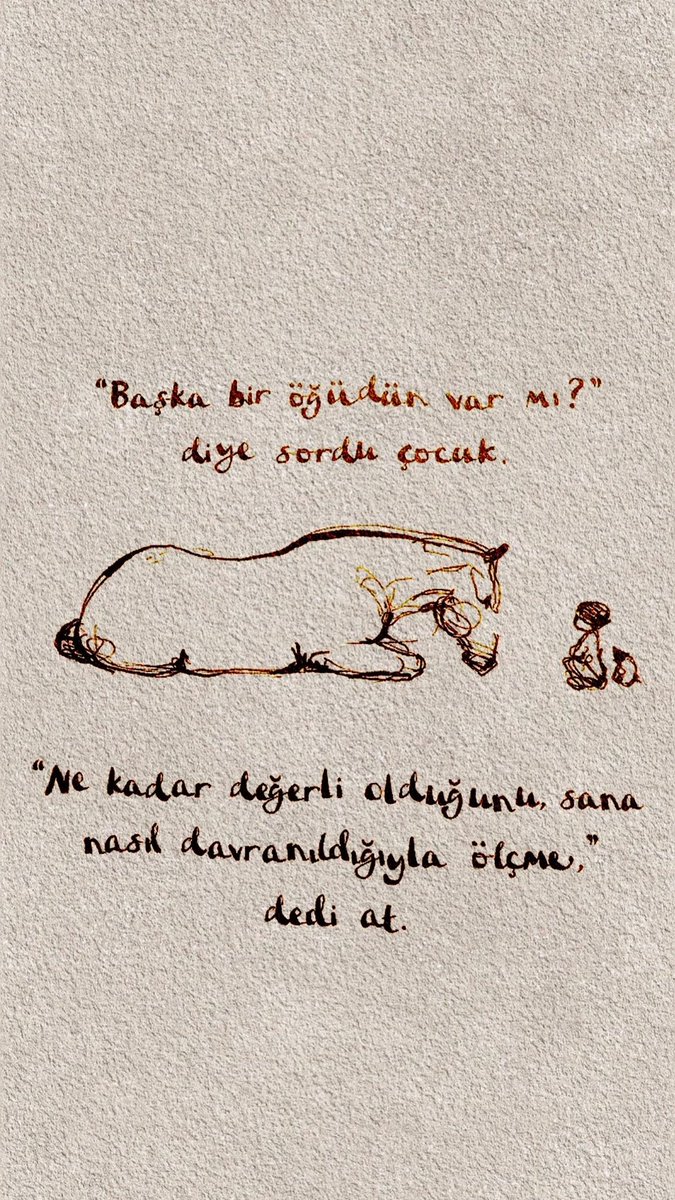 “Başka bir öğüdün var mı?”
diye sordu çocuk.
“Ne kadar değerli olduğunu, sana
nasıl davranıldığıyla ölçme,”
dedi at.